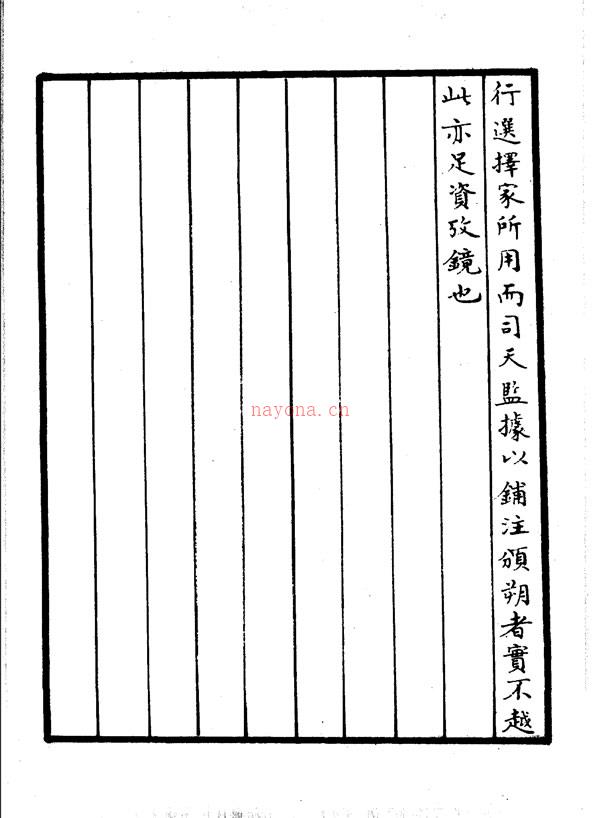 行選擇家所用而司天監據以鋪注頒朔者實不越
此亦足資攷鏡也
nayona.cn